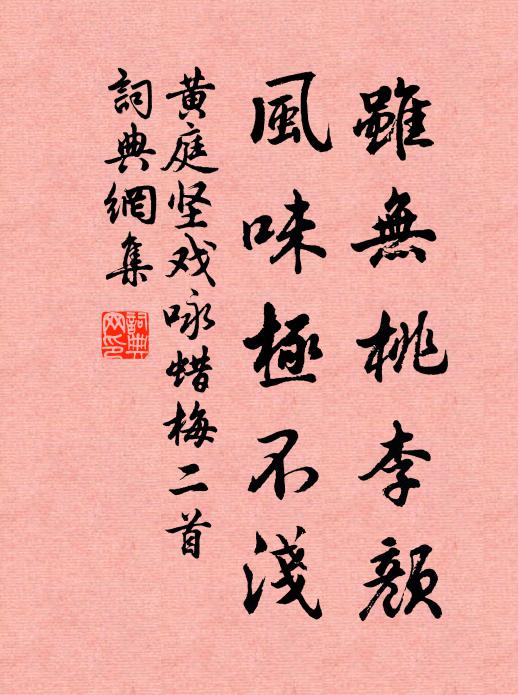 雖無桃李顏
風味極不淺
黄庭坚戏咏蜡梅二首
詞典網集
詞典
网印